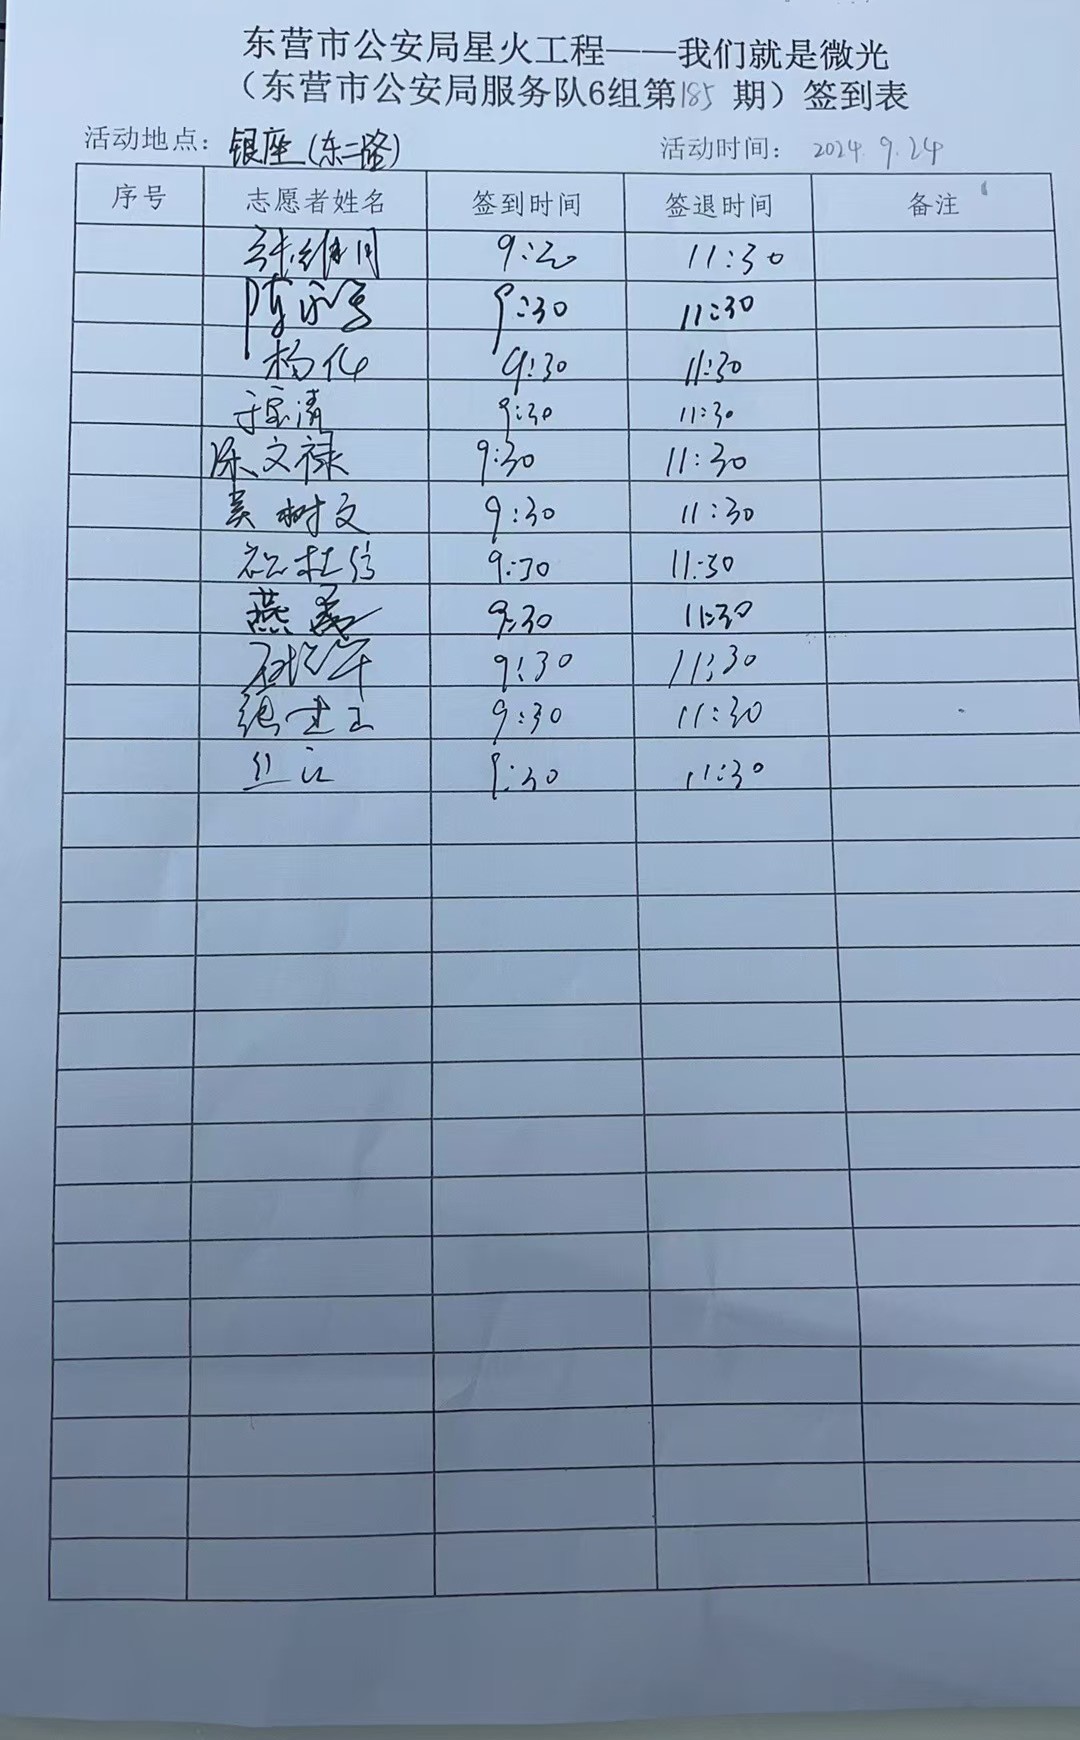 东营市公安局星火工程——我们就是微光
（东营市公安局服务队6组第185期）签到表
活动地点：银座（东二路） 活动时间：2024.9.24
序号 志愿者姓名 签到时间 签退时间 备注
张维月 9:30 11:30
陈 9:30 11:30
杨化 9:30 11:30
于宝清 9:30 11:30
陈文禄 9:30 11:30
吴树文 9:30 11:30
9:30 11:30
燕勇 9:30 11:30
9:30 11:30
9:30 11:30
9:30 11:30